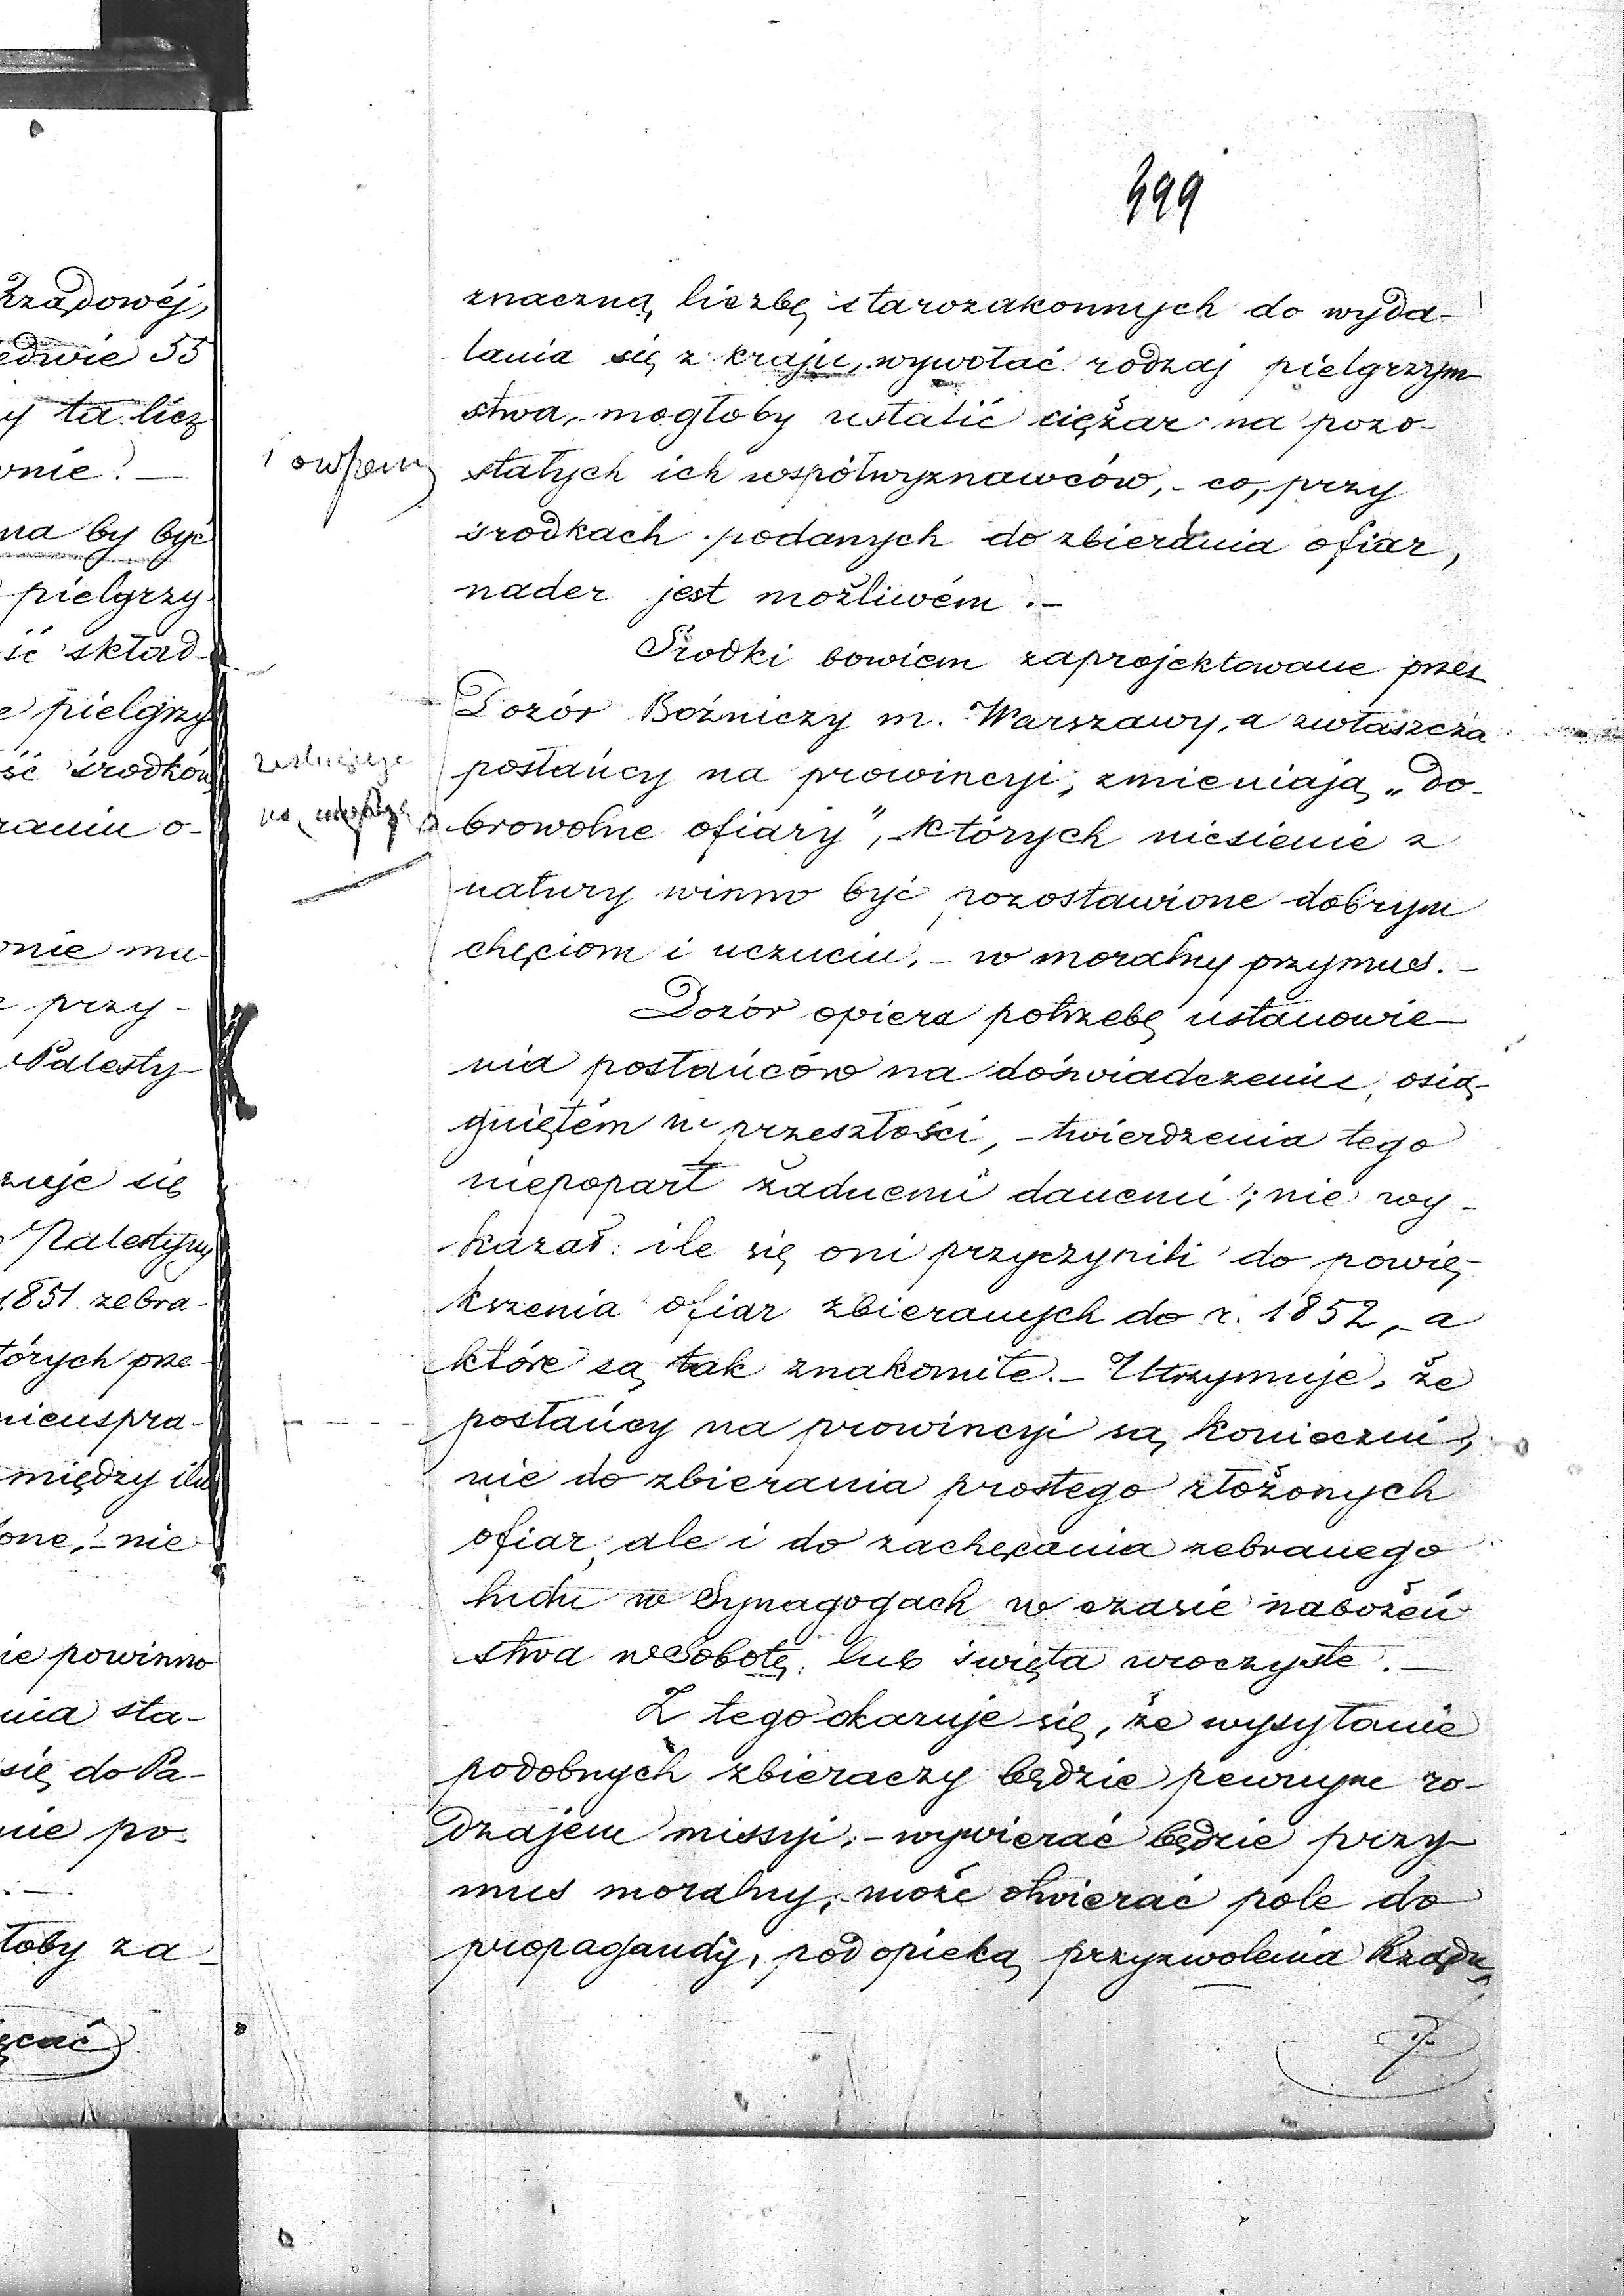 499
Rządowéj,
edwie 55
y ta licz
onie? —
na by być
pielgrzy-
ść skład-
e pielgrzy
ść środków
raniu o-
onie mu-
e przy-
Palesty-
zuje się
Palestyny
1851 zebra-
tórych prze-
nieuspra-
między ilu
one, - nie
ie powinno
nia sta-
się do Pa-
nie po-
toby za-
ęcać
i owszem
na
znaczną liczbę starozakonnych do wyda-
lania się z kraju, wywołać rodzaj pielgrzym
stwa, mogłoby ustalić ciężar na pozo-
stałych ich współwyznawców, - co, przy
środkach podanych do zbierania ofiar,
nader jest możliwém. -
Środki bowiem zaprojektowane przez
Dozór Bożniczy m. Warszawy, a zwłaszcza
posłańcy na prowincyi, zmieniają „do-
browolne ofiary", których niesienie z
natury winno być pozostawione dobrym
chęciom i uczuciu, - w moralny przymus. -
Dozór opiera potrzebę ustanowie-
nia posłańców na doświadczeniu, osią-
gniętém w przeszłości, - twierdzenia tego
niepoparł żadnemi danemi; nie wy-
kazał: ile się oni przyczynili do powię-
kszenia ofiar zbieranych do r. 1852, - a
które są tak znakomite. - Utrzymuje, że
posłańcy na prowincyi są konieczni,
nie do zbierania prostego złożonych
ofiar, ale i do zachęcania zebranego
ludu w Synagogach w czasie nabożeń
stwa w Sobotę, lub święta uroczyste. -
Z tego okazuje się, że wysyłanie
podobnych zbieraczy będzie pewnym ro-
dzajem missyi, - wywierać będzie przy-
mus moralny, - może otwierać pole do
propagandy, pod opieką przyzwolenia Rządu,